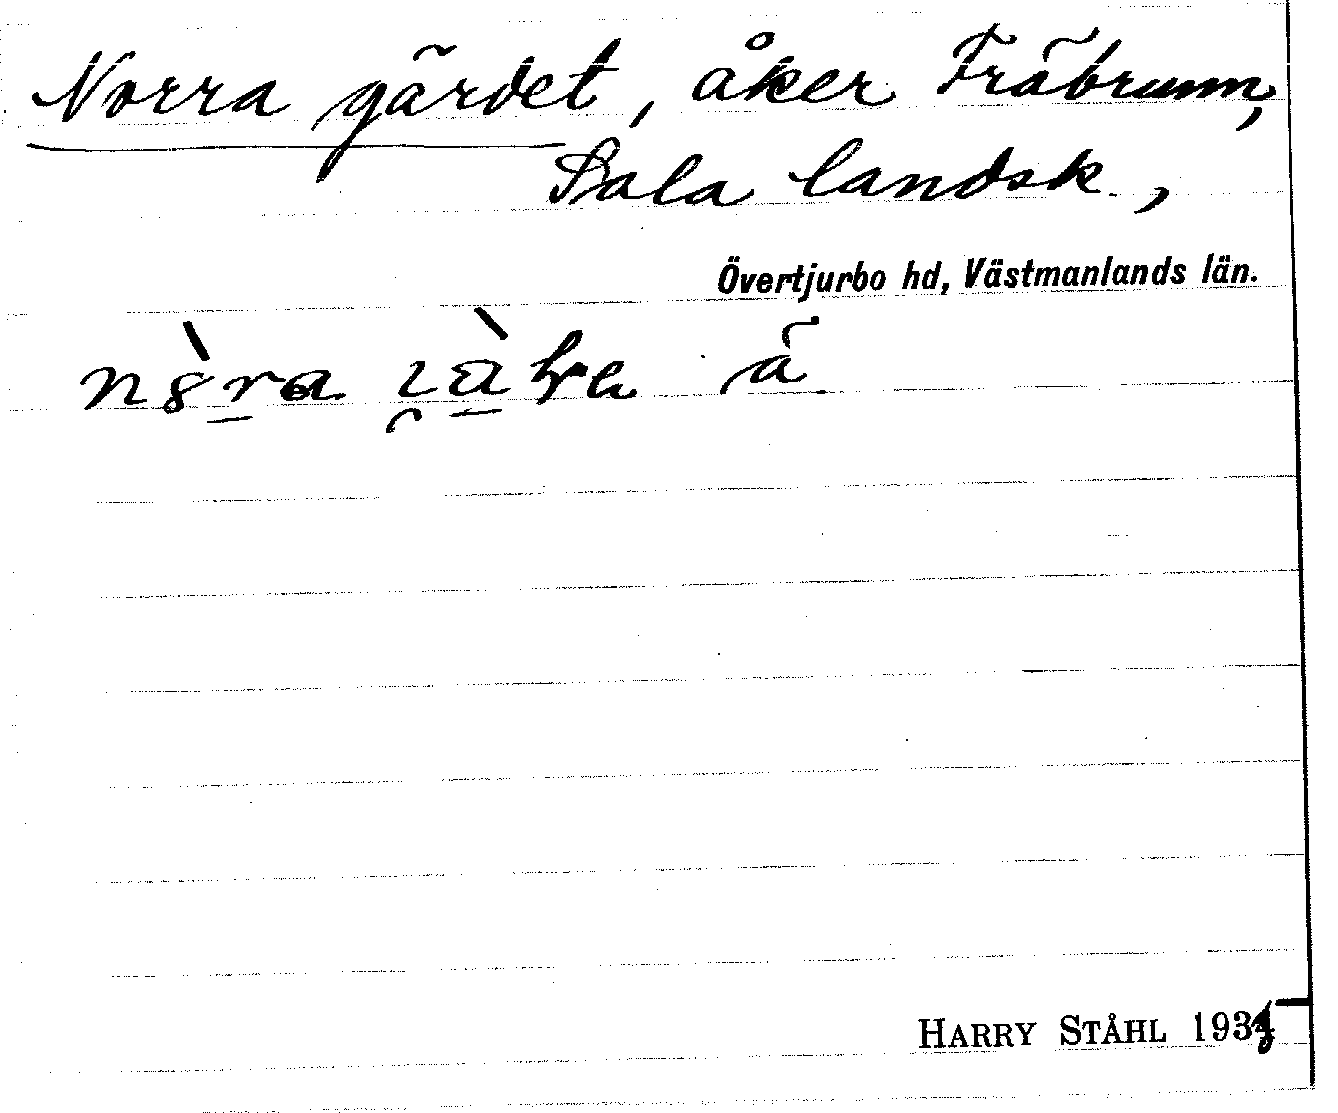 Norra gärdet, åker Fräbrunn,
Sala landsk.,
Övertjurbo hd, Västmanlands län.
å
HARRY STÅHL 1935